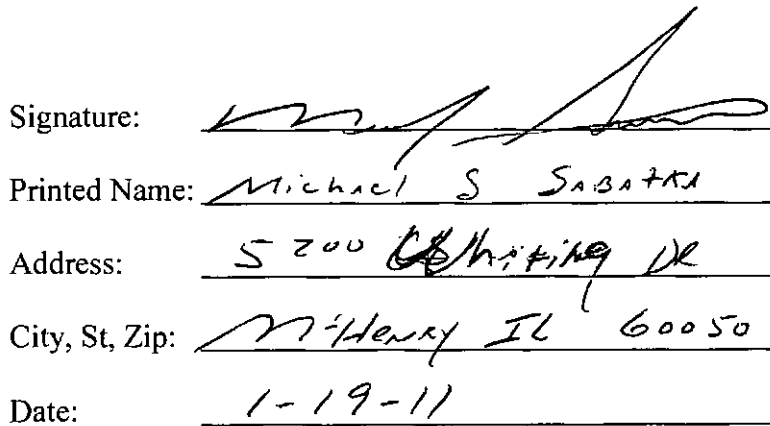 Signature:
Printed Name: Michael S SABATKA
Address: 5200 Whiting DR
City, St, Zip: McHenry IL 60050
Date: 1-19-11